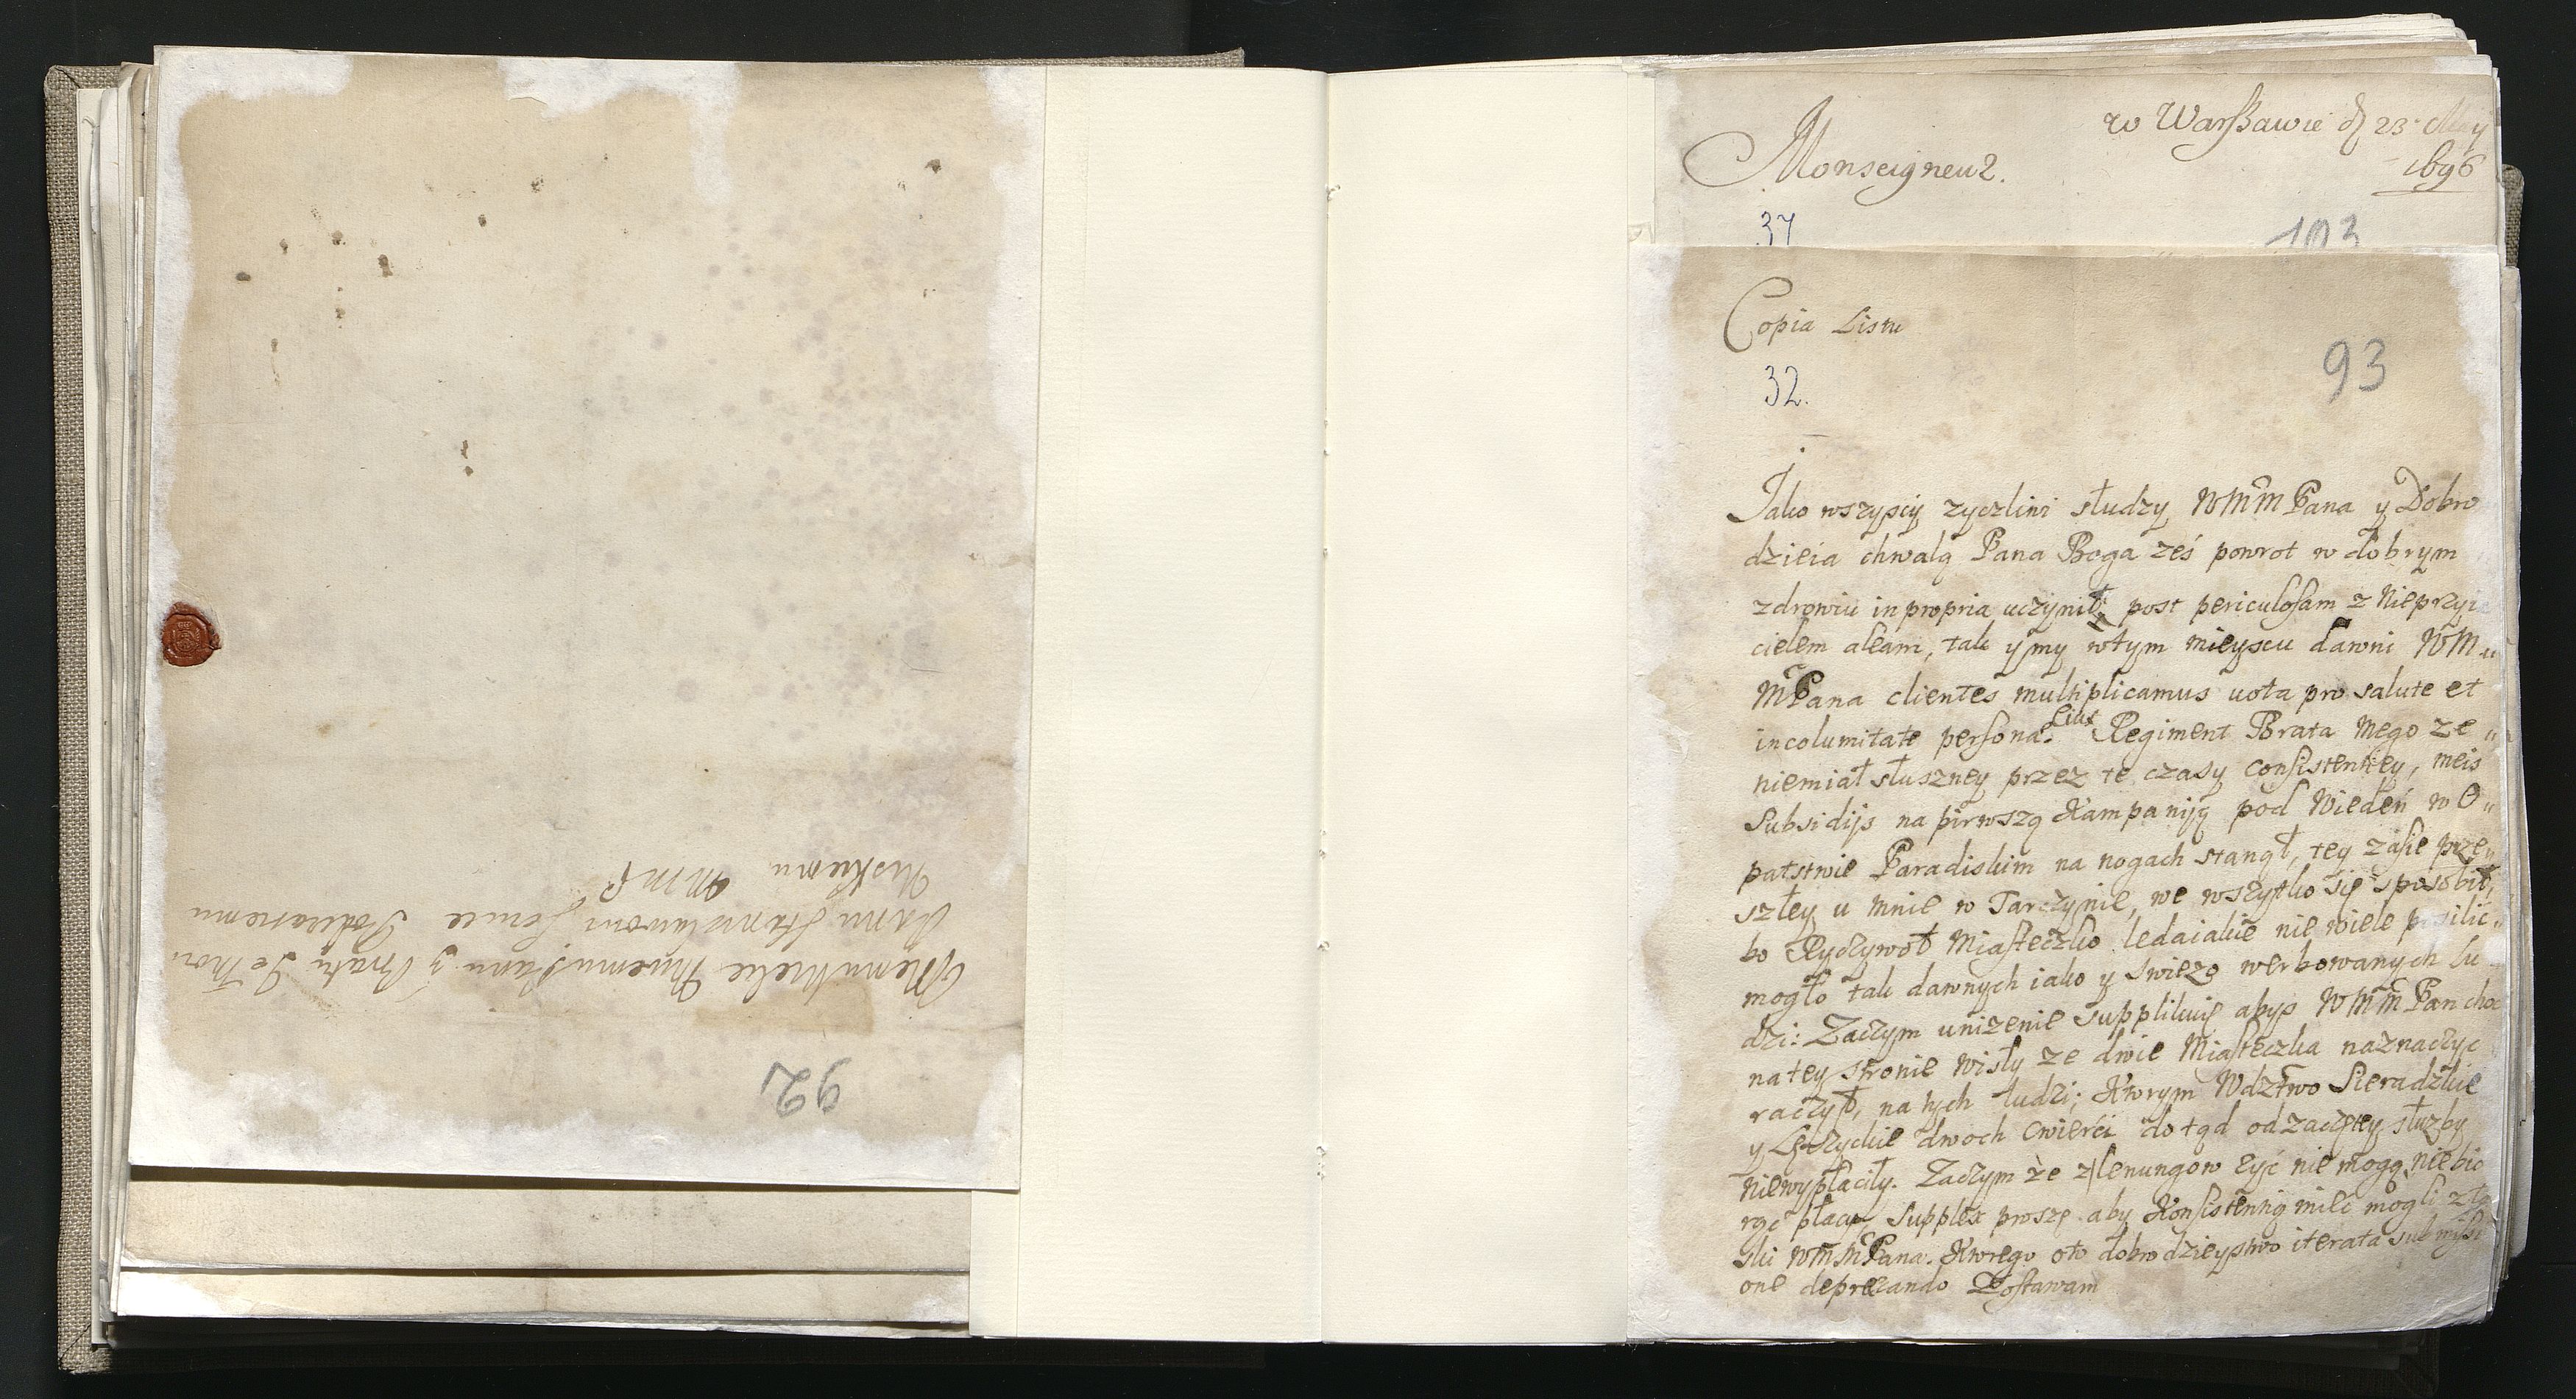 Memu Wielce Mwemu Panu y Bratu Je Mo
Panu Stanisławowi
MMP
92
w Warßawie d 23 May
1696
Monseigneur.
37
103
Copia Listu
93
32.
Jako wszyscy zyczliwi słudzy WMM Pana y Dobro
dzieia chwalą Pana Boga żeś powrot w dobrym
zdrowiu in propria uczynił, post periculosam z Nieprzyia
cielem aleam, tak y my w tym mieyscu dawni WM
MPana clientes multiplicamus uota pro salute et
incolumitate personae Eius. Regiment Brata mego ze
niemiał słuszney przez te czasy consistentiey, meis
subsidijs na pirwszą Kampaniją pod Wiedeń w O
patstwie Paradiskim na nogach stanął, tey zasie prze
szłey u mnie w Tarczynie, we wszytko się sposobił,
bo Ryczywoł Miasteczko ledaiakie nie wiele posilić
mogło tak dawnych iako y swiezo werbowanych lu
dzi: Zaczym unizenie supplikuię abys WMM Pan choc
na tey stronie Wisły ze dwie Miasteczka naznaczyc
raczył, na tych ludzi; Ktorym Wdztwo Sieradzkie
y Łęczyckie dwoch cwierci do tąd od zaczętey służby
niewypłaciły. Zaczym że z lenungow żyć nie mogą nie bio
rąc płacy, supplex proszę aby Konsistentią mieć mogli z ła
ski WMMPana. Ktorego oto dobrodzieystwo iterata submissi
one deprecando Zostawam